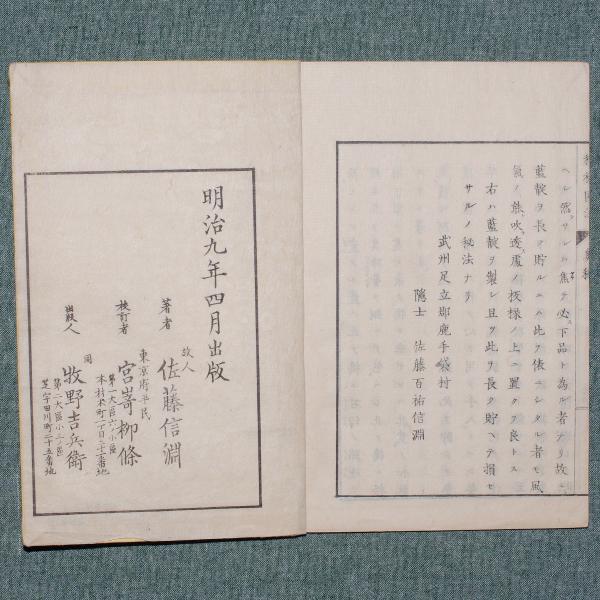 ヘシ然ラサレハ焦テ必ス下品ト為ル者ナリ故ニ
藍靛ヲ長ク貯ルニハ此ヲ俵ニシタル者モ風
氣ノ能吹透處ノ板様ノ上ニ置クヲ良トス
右ハ藍靛ヲ製シ且ツ此ヲ長ク貯ヘテ損セ
サルノ秘法ナリ
武州足立郡鹿手袋村
隠士 佐藤百祐信淵
明治九年四月出版
故人
著者 佐藤信淵
東京府平民
校訂者 宮嵜柳條
第一大區六小區
本材木町二丁目二十二番地
同
出版人 牧野吉兵衛
第二大區小三ノ區
芝宇田川町二十五番地